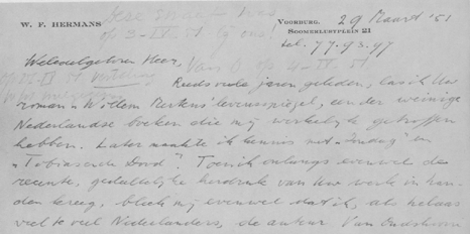 W. F. HERMANS
VOORBURG, 29 Maart '51
SOOMERLUSTPLEIN 21
tel. 77.93.97
op 3-IV-51 bij ons!
Weledelgeboren Heer,
Van O. op 4-IV-51
Reeds vele jaren geleden, las ik Uw
roman "Willem Mertens' levensspiegel", een der weinige
Nederlandse boeken die mij werkelijk getroffen
hebben. Later maakte ik kennis met "Zondag" en
"Tobias en de Dood". Toen ik onlangs evenwel de
recente, gedeeltelijke herdruk van Uw werk in han-
den kreeg, bleek mij evenwel dat ik, als helaas
veel te veel Nederlanders, de auteur Van Oudshoorn